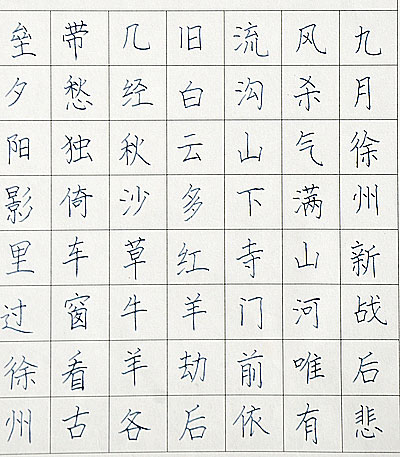 九月徐州新战后悲
风杀气满山河唯有
流沟山下寺门前依
旧白云多红羊劫后
几经秋沙草牛羊各
带愁独倚车窗看古
垒夕阳影里过徐州